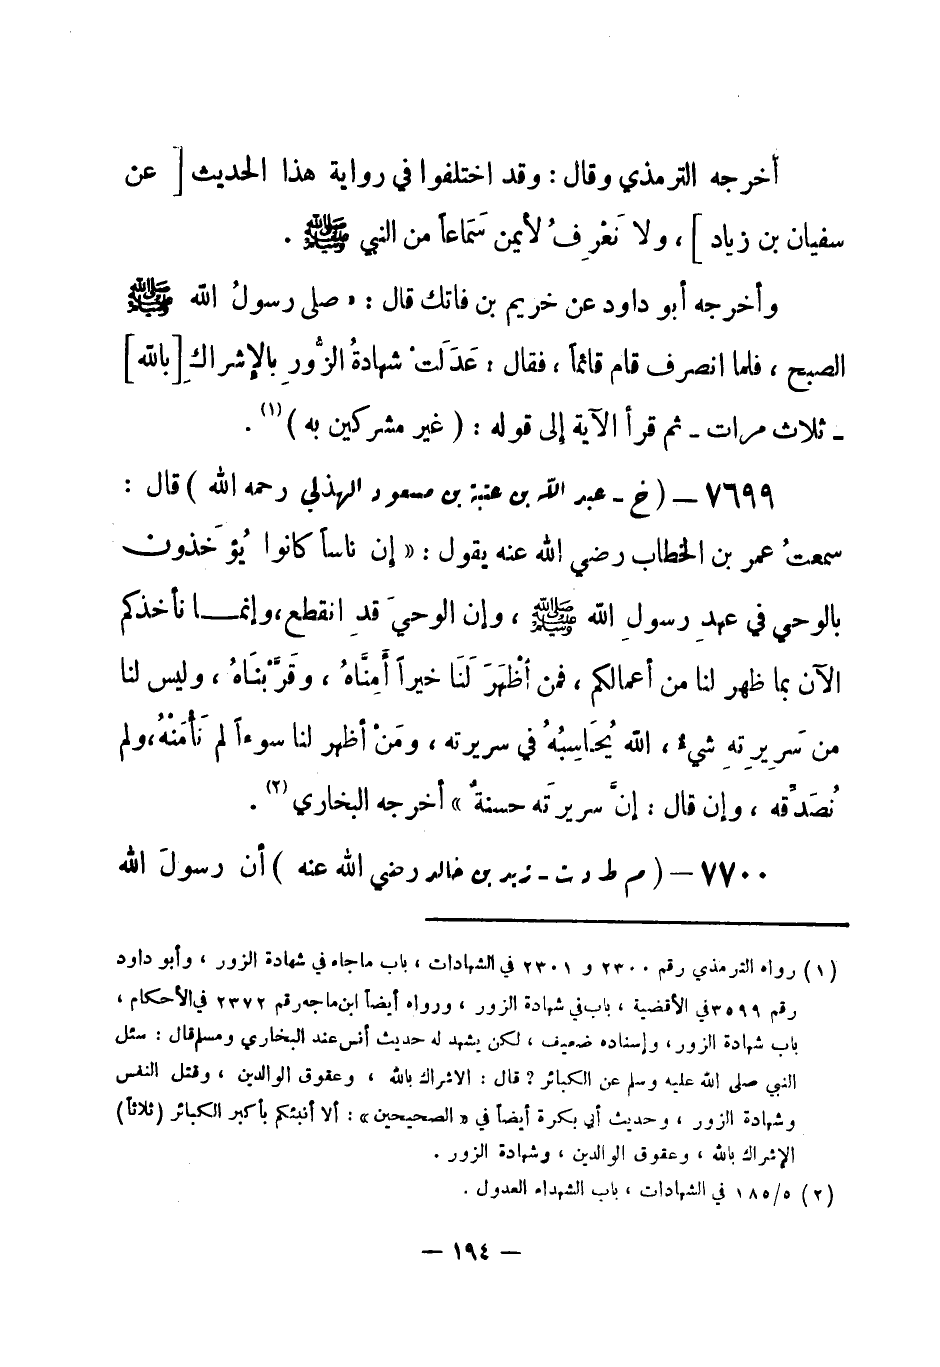 أخرجه الترمذي وقال : وقد اختلفوا في رواية هذا الحديث [ عن
سفيان بن زياد ] ، ولا نَعْرِفُ لأيمن سَمَاعاً من النبي ﷺ .
وأخرجه أبو داود عن خريم بن فاتك قال : « صلى رسولُ الله ﷺ
الصبح ، فلما انصرف قام قائماً ، فقال : عَدَلَتْ شهادةُ الزُّورِ بالإشراكِ [بالله]
ـ ثلاث مرات ـ ثم قرأ الآية إلى قوله : ( غير مشركين به ) (١) .
٧٦٩٩ – ( خ ـ عبد الله بن عتبة بن مسعود الهذلي رحمه الله ) قال :
سمعتُ عمر بن الخطاب رضي الله عنه يقول : « إن ناساً كانوا يُؤخَذون
بالوحي في عهدِ رسولِ الله ﷺ ، وإن الوحيَ قدِ انقطع،وإنمـــا نأخذكم
الآن بما ظهر لنا من أعمالكم ، فمن أظْهَرَ لَنَا خيراً أَمِنَّاهُ ، وقَرَّبْنَاهُ ، وليس لنا
من سَرِيرتِهِ شيءٌ ، الله يُحَاسِبُهُ في سريرته ، ومَنْ أظهر لنا سوءاً لم نَأْمَنْهُ،ولم
نُصَدِّقه ، وإن قال : إنَّ سريرتَه حسنةٌ » أخرجه البخاري (٢) .
٧٧٠٠ – ( م ط د ت ـ زيد بن خالد رضي الله عنه ) أن رسولَ الله
(١) رواه الترمذي رقم ٢٣٠٠ و ٢٣٠١ في الشهادات ، باب ماجاء في شهادة الزور ، وأبو داود
رقم ٣٥٩٩ في الأقضية ، باب في شهادة الزور ، ورواه أيضاً ابن ماجه رقم ٢٣٧٢ في الأحكام ،
باب شهادة الزور ، وإسناده ضعيف ، لكن يشهد له حديث أنس عند البخاري ومسلم قال : سئل
النبي صلى الله عليه وسلم عن الكبائر ؟ قال : الاشراك بالله ، وعقوق الوالدين ، وقتل النفس
وشهادة الزور ، وحديث أبي بكرة أيضاً في « الصحيحين » : ألا أنبئكم بأكبر الكبائر (ثلاثاً)
الإشراك بالله ، وعقوق الوالدين ، وشهادة الزور .
(٢) ١٨٥/٥ في الشهادات ، باب الشهداء العدول .
– ١٩٤ –